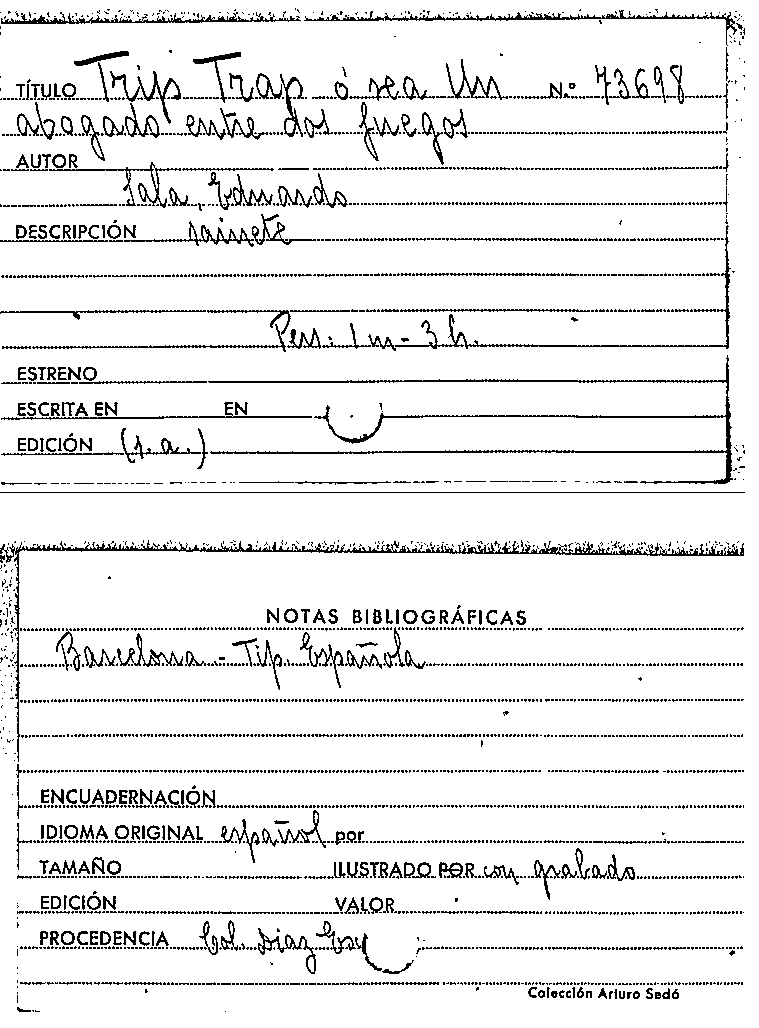 TÍTULO Trip Trap ó sea Un N.º 73698
abogado entre dos fuegos
AUTOR
Sala, Eduardo
DESCRIPCIÓN sainete
Pers: 1 m - 3 h.
ESTRENO
ESCRITA EN EN
EDICIÓN (s.a.)
NOTAS BIBLIOGRÁFICAS
Barcelona - Tip. Española
ENCUADERNACIÓN
IDIOMA ORIGINAL español por
TAMAÑO ILUSTRADO POR con grabado
EDICIÓN VALOR
PROCEDENCIA Col. Diaz
Colección Arturo Sedó